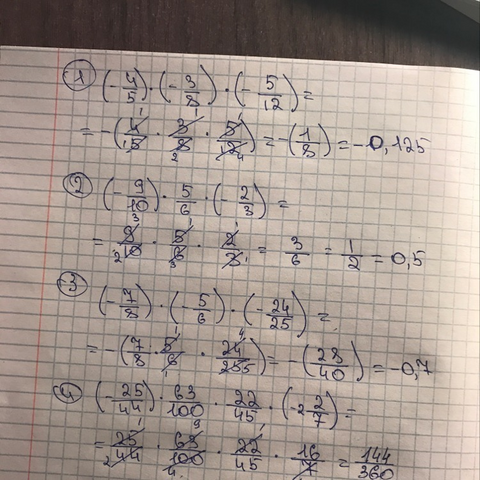 1 (-4/5)·(-3/8)·(-5/12)=
=-(4/5·3/8·5/12)=-(1/8)=-0,125
2 (-9/10)·5/6·(-2/3)=
=9/10·5/6·2/3=3/6=1/2=0,5
3 (-7/8)·(-5/6)·(-24/25)=
=-(7/8·5/6·24/255)=-(28/40)=-0,7
4 (-25/44)·63/100·22/45·(-2 2/7)=
=25/44·63/100·22/45·16/7=144/360